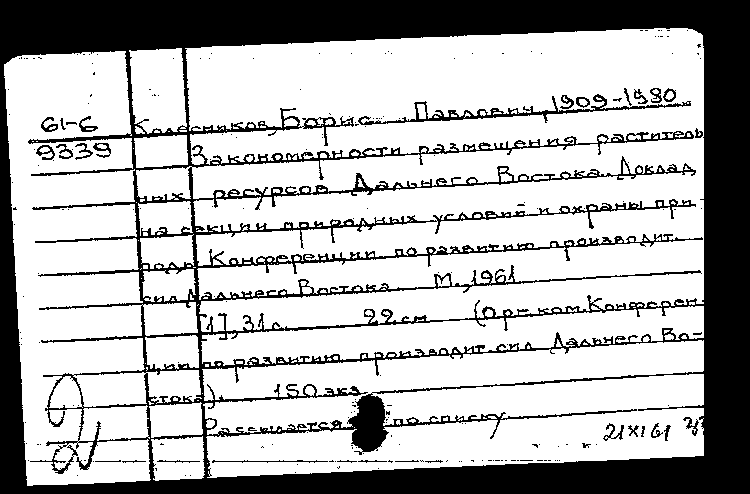 61-6 Колесников, Борис Павлович, 1909-1980
9339 Закономерности размещения раститель
ных ресурсов Дальнего Востока. Доклад
на секции природных условий и охраны при
роды Конференции по развитию производит.
сил Дальнего Востока. М., 1961
[1], 31 л. 22 см (Орг. ком. Конферен-
ции по развитию производит. сил Дальнего Во-
стока). 150 экз.
Рассылается по списку
21 XI 61